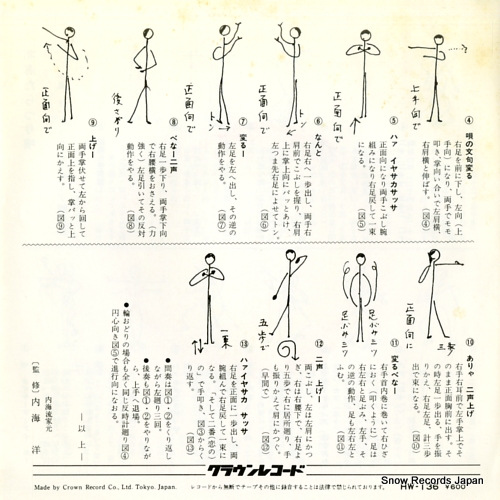 ④ 唄の文句変る
右足を前に下し、左向（上
手向）になり、両手でモモ
を叩き、掌向い合いで左肩横、
右肩横と伸ばす。（図④）
上手向で
⑤ ハァ イヤサカサッサ
正面向になり両手こぶし腕
組みになり右足戻して一束
になる。（図⑤）
正面向で
⑥ なんと
右足右へ一歩出し、両手右
肩前でこぶしを握り、右肩
上に掌上向にパッとあけ、
左つま先右足によせてトン。
（図⑥）
正面向で
トン
⑦ 変るー
左足を左へ出し、その逆の
動作をやる。（図⑦）
正面向で
トン
⑧ べなー二声
右足一歩下り、両手掌下向
で右腰横をおさえる。（力
強く）左足引いてその反対
動作をやる。（図⑧）
後さがり
⑨ 上げー
両手掌伏せて左から回して
正面上を指し、掌パッと上
向にかえす。（図⑨）
正面向で
⑩ ありゃ 二声上げー
右手右耳前で左手掌上でそ
のまま正面胸前に出す。そ
の時左足一歩出る。手を振
りかえて、右足左足、計三歩
出て束になる。（図⑩）
正面向に
三歩
⑪ 変るべなー
右手首内巻に巻いて右ひざ
におく（叩くように）足は
右左右と足ぶみ、左手、そ
の逆の動作。足も左右左と
ふむ（図⑪）
足ぶみ三ツ
足ぶみ三ツ
⑫ 二声 上げー
両手こぶし左は左肩にかつ
ぎ、右は右腰下で、右足よ
り五歩で右に居所廻り、手
も振りかえて肩にかつぐ。
（早間で）（図⑫）
五歩で
⑬ ハァイヤサカ サッサ
右足を正面に一歩出し、両
腕組んで右足戻して一束に
なる。そして二番（恋の
い）で手叩き、図③からく
り返す。（図⑬）
一束
●間奏は図①・②をくり返し
ながら左廻り三回。
●後奏も図①・②をやりなが
ら、上手へ退場。
●輪おどりの場合も全く同じ反時計廻り（図④
円心向き図⑤で進行向になおる。）
―以上―
内海流家元
〔監修〕内海 洋
クラウンレコード
Made by Crown Record Co., Ltd. Tokyo. Japan.
レコードから無断でテープその他に録音することは法律で禁じられております。
HW-136 ¥600
Snow Records Japan
(C)